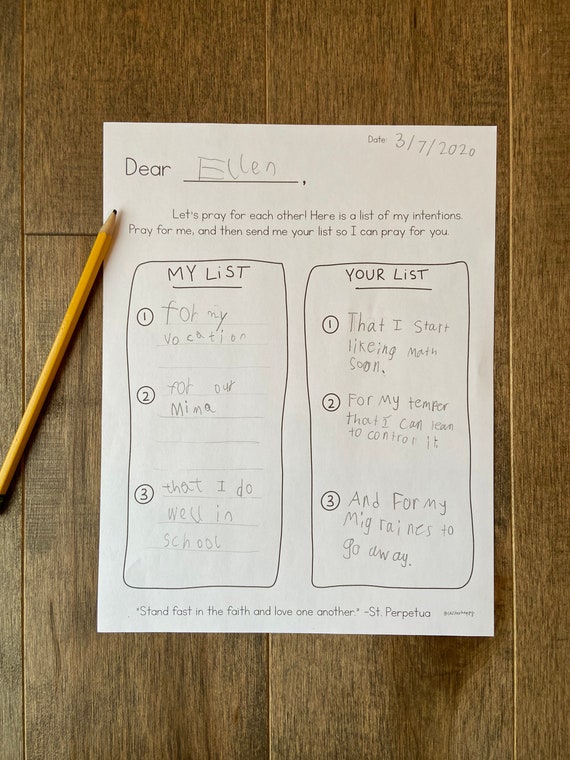 Date: 3/7/2020
Dear Ellen,
Let's pray for each other! Here is a list of my intentions.
Pray for me, and then send me your list so I can pray for you.
MY LiST
1 for my
vocation
2 for our
Mima
3 that I do
well in
school
YOUR LIST
1 That I start
likeing math
soon.
2 For My temper
that I can lean
to control it
3 And For my
Mig raines to
go away.
"Stand fast in the faith and love one another." -St. Perpetua